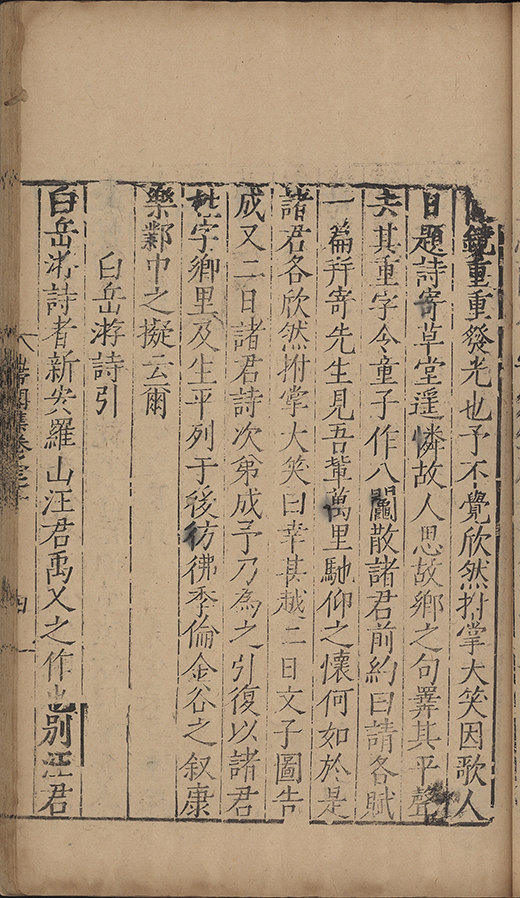 鏡重重發光也予不覺欣然拊掌大笑因歌人
日題詩寄草堂遥憐故人思故鄉之句其平聲
去其重字令童子作八鬮散諸君前約曰請各賦
一篇幷寄先生見吾輩萬里馳仰之懷何如於是
諸君各欣然拊掌大笑曰幸甚越二日文子圖告
成又二日諸君詩次第成予乃為之引復以諸君
姓字鄉里及生平列于後彷彿季倫金谷之叙康
樂鄴中之擬云爾
白岳游詩引
白岳游詩者新安羅山汪君禹乂之作也別汪君
四